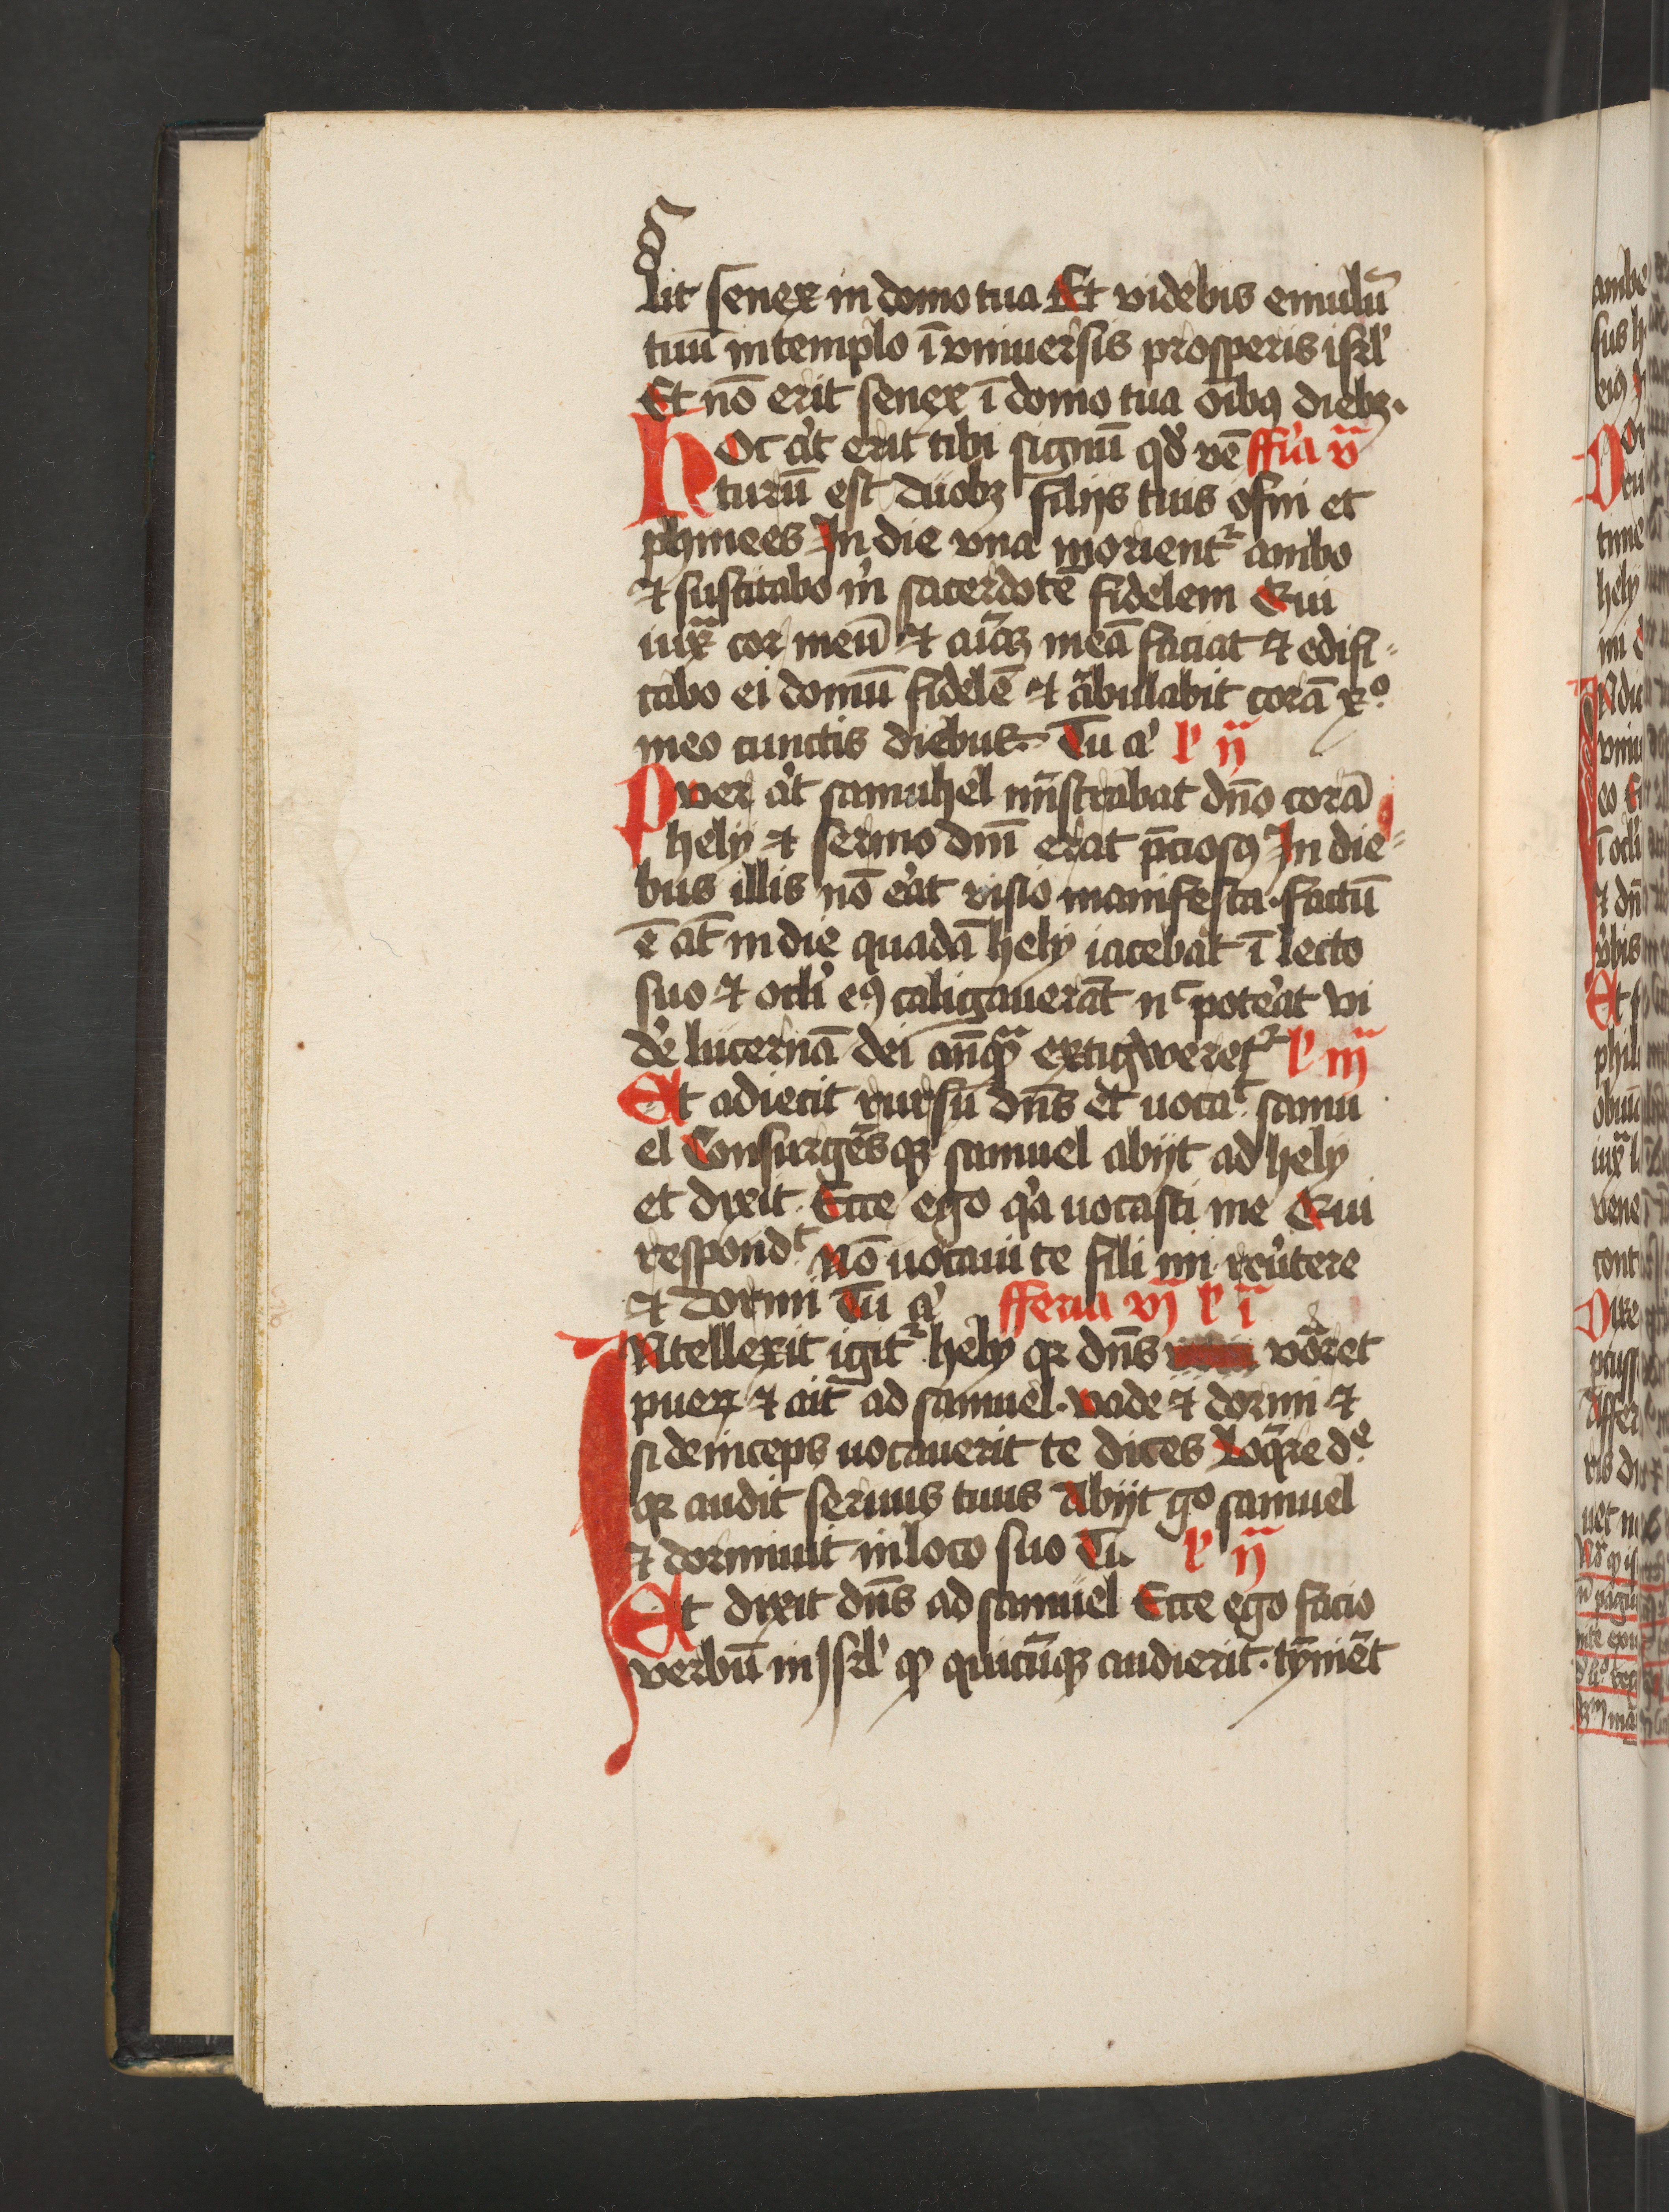 sit senex in domo tua Et videbis emulū
tuū in templo ī vniuersis prosperis isrl'
Et nō erit senex ī domo tua oībꝰ diebꝫ.
hOc aūt erit tibi signū qd' vē ffīa v
turū est duobꝫ filijs tuis ofni et
phinees In die vna morient᷑ ambo
⁊ suscitabo m̄ sacerdotē fidelem Qui
iuxᷓ cor meū ⁊ aīaꝫ meā faciat ⁊ edifi-
cabo ei domū fidelē ⁊ ābulabit corā xº
meo cunctis diebus. Tu a' l' ij
Puer aūt samuhel mīstrabat dn̄o corā
hely ⁊ sermo dnī erat p̄ciosꝰ In die-
bus illis nō eāt visio manifesta. factū
ē aūt in die quadā hely iacebat ī lecto
suo ⁊ ocl'i eiꝰ caligauerāt nᶜ poteāt vi
de lucernā dei anqᷓ extigweret᷑ l' iij
Et adiecit rursū dn̄s et uocaᵗ samu
el Consurgēsqꝫ samuel abijt ad hely
et dixit. Ecce ego q'a uocasti me Qui
respondᵗ Nō uocaui te fili mi reu'tere
⁊ dormi Tu a' fferia vj l' i
INtellexit igit᷑ hely qꝛ dn̄s vōret
pueꝝ ⁊ ait ad samuel. vade ⁊ dormi ⁊
si deinceps uocauerit te dices Loqᷓre dᵉ
qꝛ audit seruus tuus Abijt gº samuel
⁊ dormiuit in loco suo Tu l' ij
Et dixit dn̄s ad samuel Ecce ego facio
verbū in Isrl' qᷓ quicūqꝫ audierit. tȳniēt